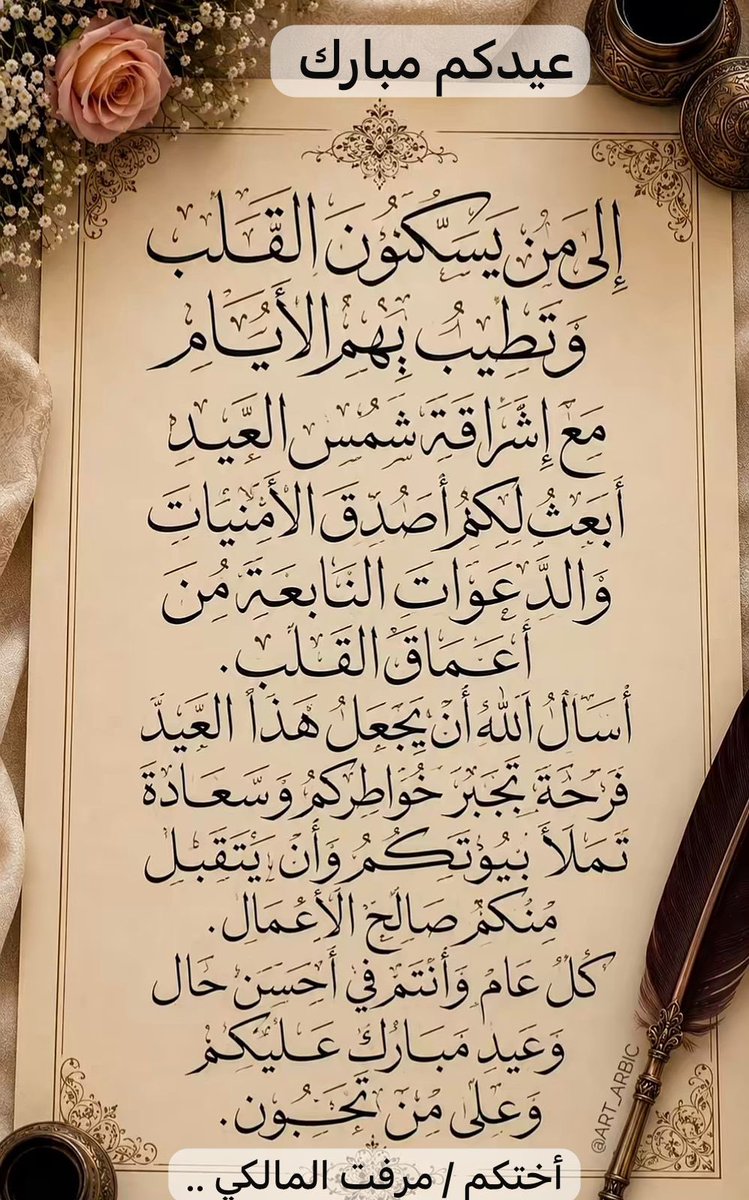 عيدكم مبارك
إلى من يسكنون القلب
وتطيب بهم الأيام
مع إشراقة شمس العيد
أبعث لكم أصدق الأمنيات
والدعوات النابعة من
أعماق القلب.
أسأل الله أن يجعل هذا العيد
فرحة تجبر خواطركم وسعادة
تملأ بيوتكم وأن يتقبل
منكم صالح الأعمال.
كل عام وأنتم في أحسن حال
وعيد مبارك عليكم
وعلى من تحبون.
@ART_ARBIC
أختكم / مرفت المالكي ..